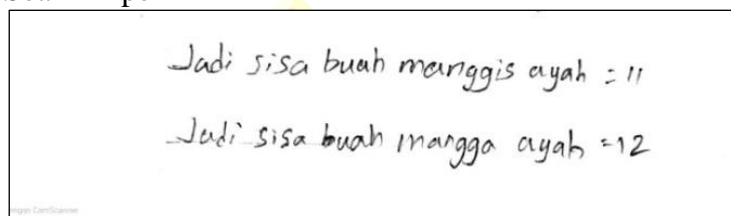 Jadi sisa buah manggis ayah = 11
Jadi sisa buah mangga ayah = 12